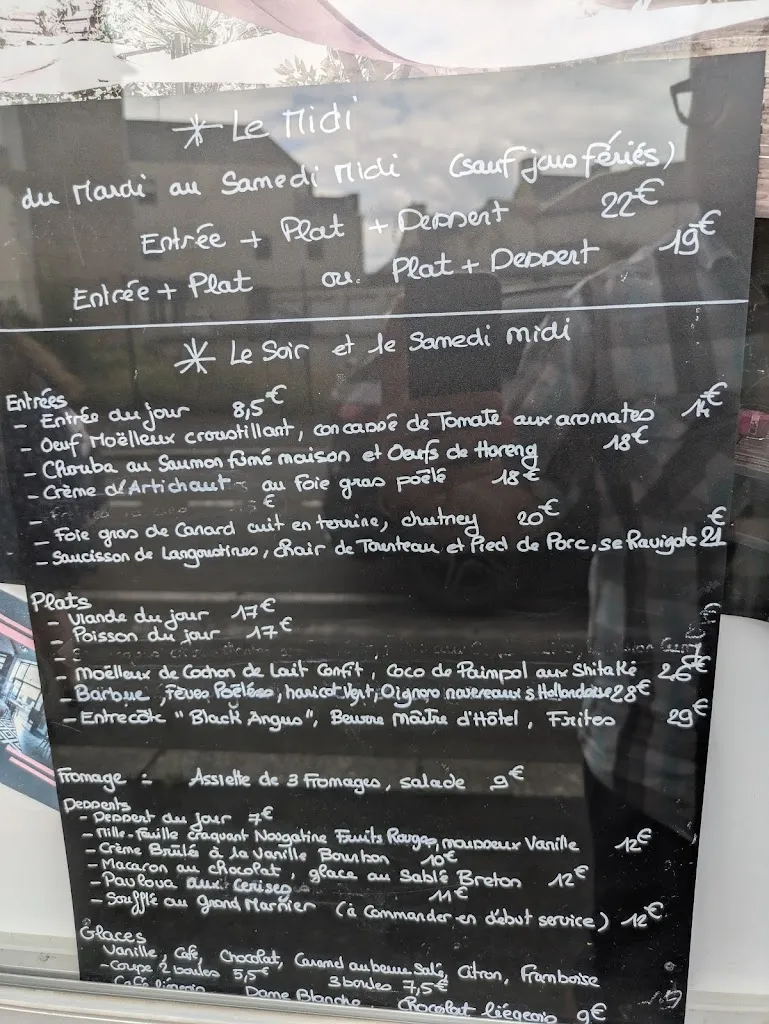 * Le Midi
du Mardi au Samedi Midi (sauf jours fériés)
Entrée + Plat + Dessert 22€
Entrée + Plat ou. Plat + Dessert 19€
* Le Soir et le Samedi midi
Entrées
- Entrée du jour 8,5€
- Oeuf Moëlleux croustillant, concassé de Tomate aux aromates 14€
- Chouba au Saumon fumé maison et Oeufs de Hareng 18€
- Crème d'Artichaut au Foie gras poêlé 18€
- €
- Foie gras de Canard cuit en terrine, chutney 20€
- Saucisson de Langoustines, Chair de Tourteau et Pied de Porc, se Ravigote 21€
Plats
- Viande du jour 17€
- Poisson du jour 17€
- Moëlleux de Cochon de Lait Confit, Coco de Paimpol aux Shitaké 26€
- Barbue, Fèves Poêlées, haricot Vert, Oignons nouveaux s Hollandaise 28€
- Entrecôte "Black Angus", Beurre Maître d'Hôtel, Frites 29€
Fromage : Assiette de 3 Fromages, salade 9€
Desserts
- Dessert du jour 7€
- Mille-feuille craquant Nougatine Fruits Rouges, mousseux Vanille 12€
- Crème Brûlé à la Vanille Bourbon 10€
- Macaron au chocolat, glace au Sablé Breton 12€
- Pavlova aux Cerises 11€
- Soufflé au Grand Marnier (à Commander en début service) 12€
Glaces
Vanille, Café, Chocolat, Caramel au beurre Salé, Citron, Framboise
- Coupe 2 boules 5,5€ 3 boules 7,5€
Café liégeois Dame Blanche Chocolat liégeois 9€